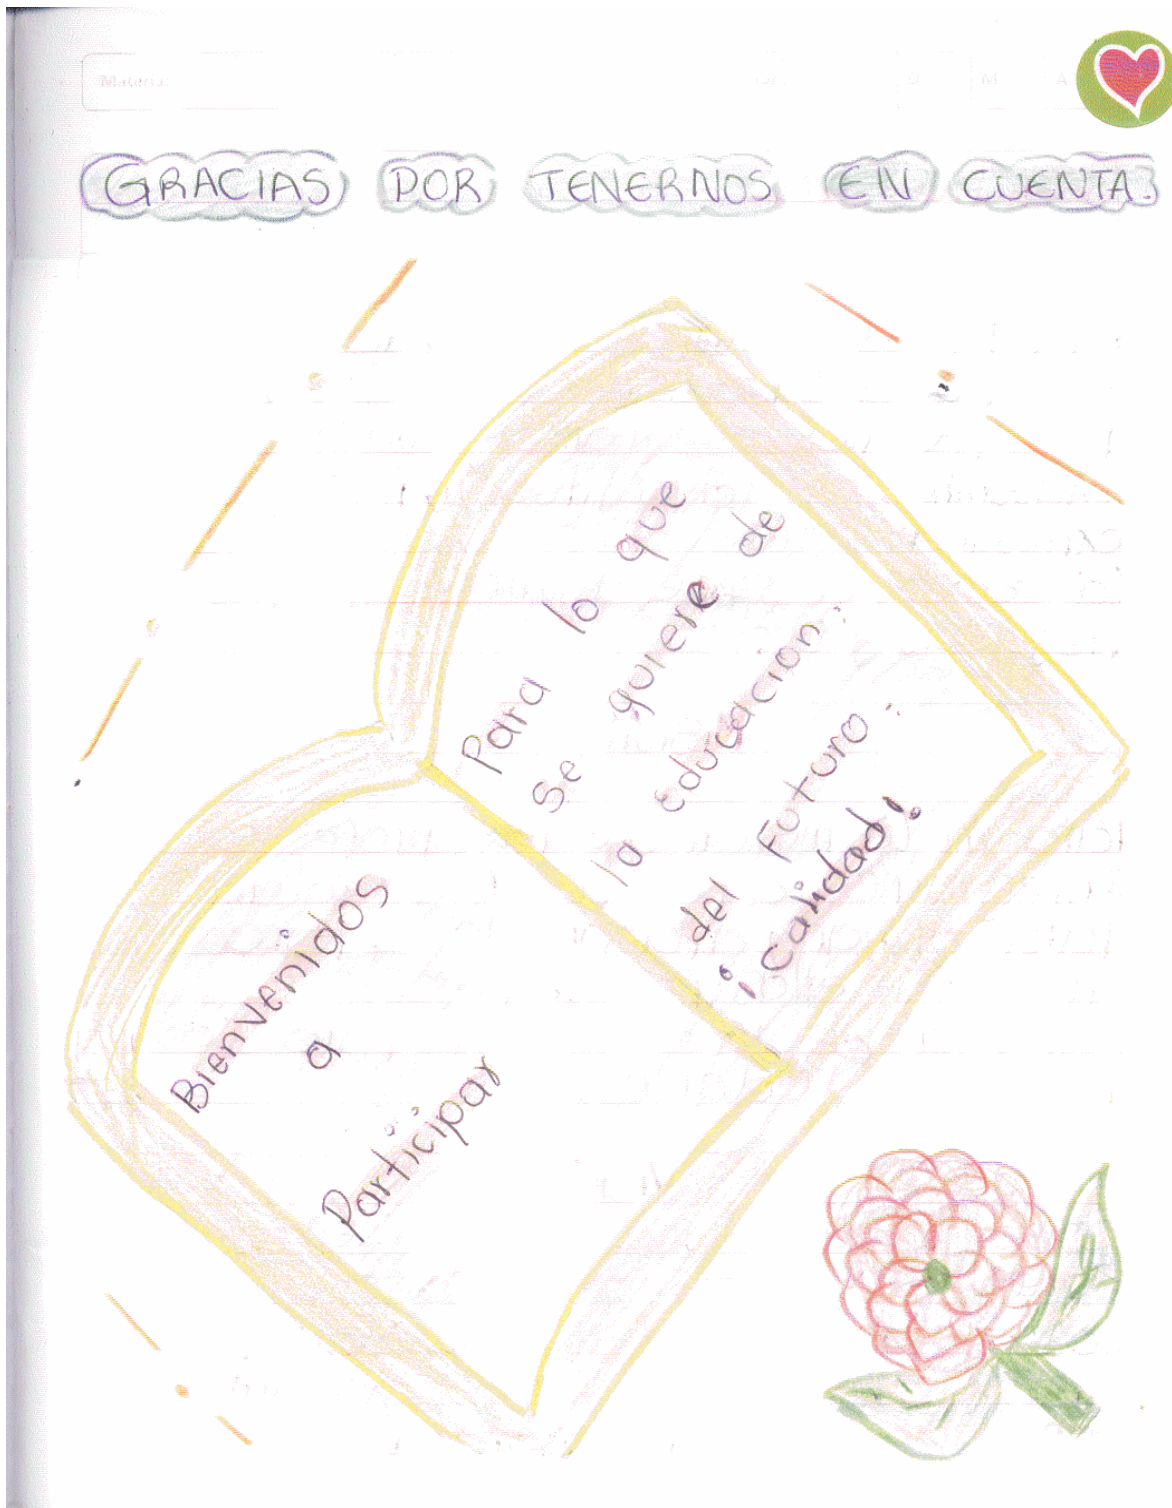 GRACIAS POR TENERNOS EN CUENTA.
Bienvenidos
a
Participar
Para lo que
se quiere de
la educacion
del Futuro:
¡calidad!